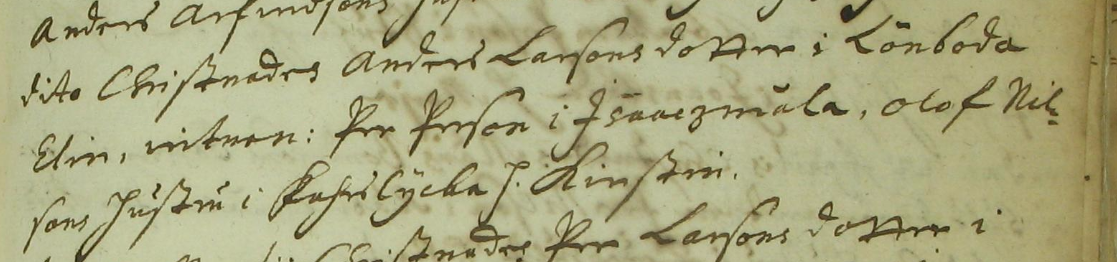 Anders Arfwidsons
dito Christnades Anders Larsons dotter i Lönboda
Elin, witnen: Per Person i Isaaczmåla, Olof Nil-
sons hustru i Kahrslÿcka h. Kirstin.
Christnades Per Larsons dotter i